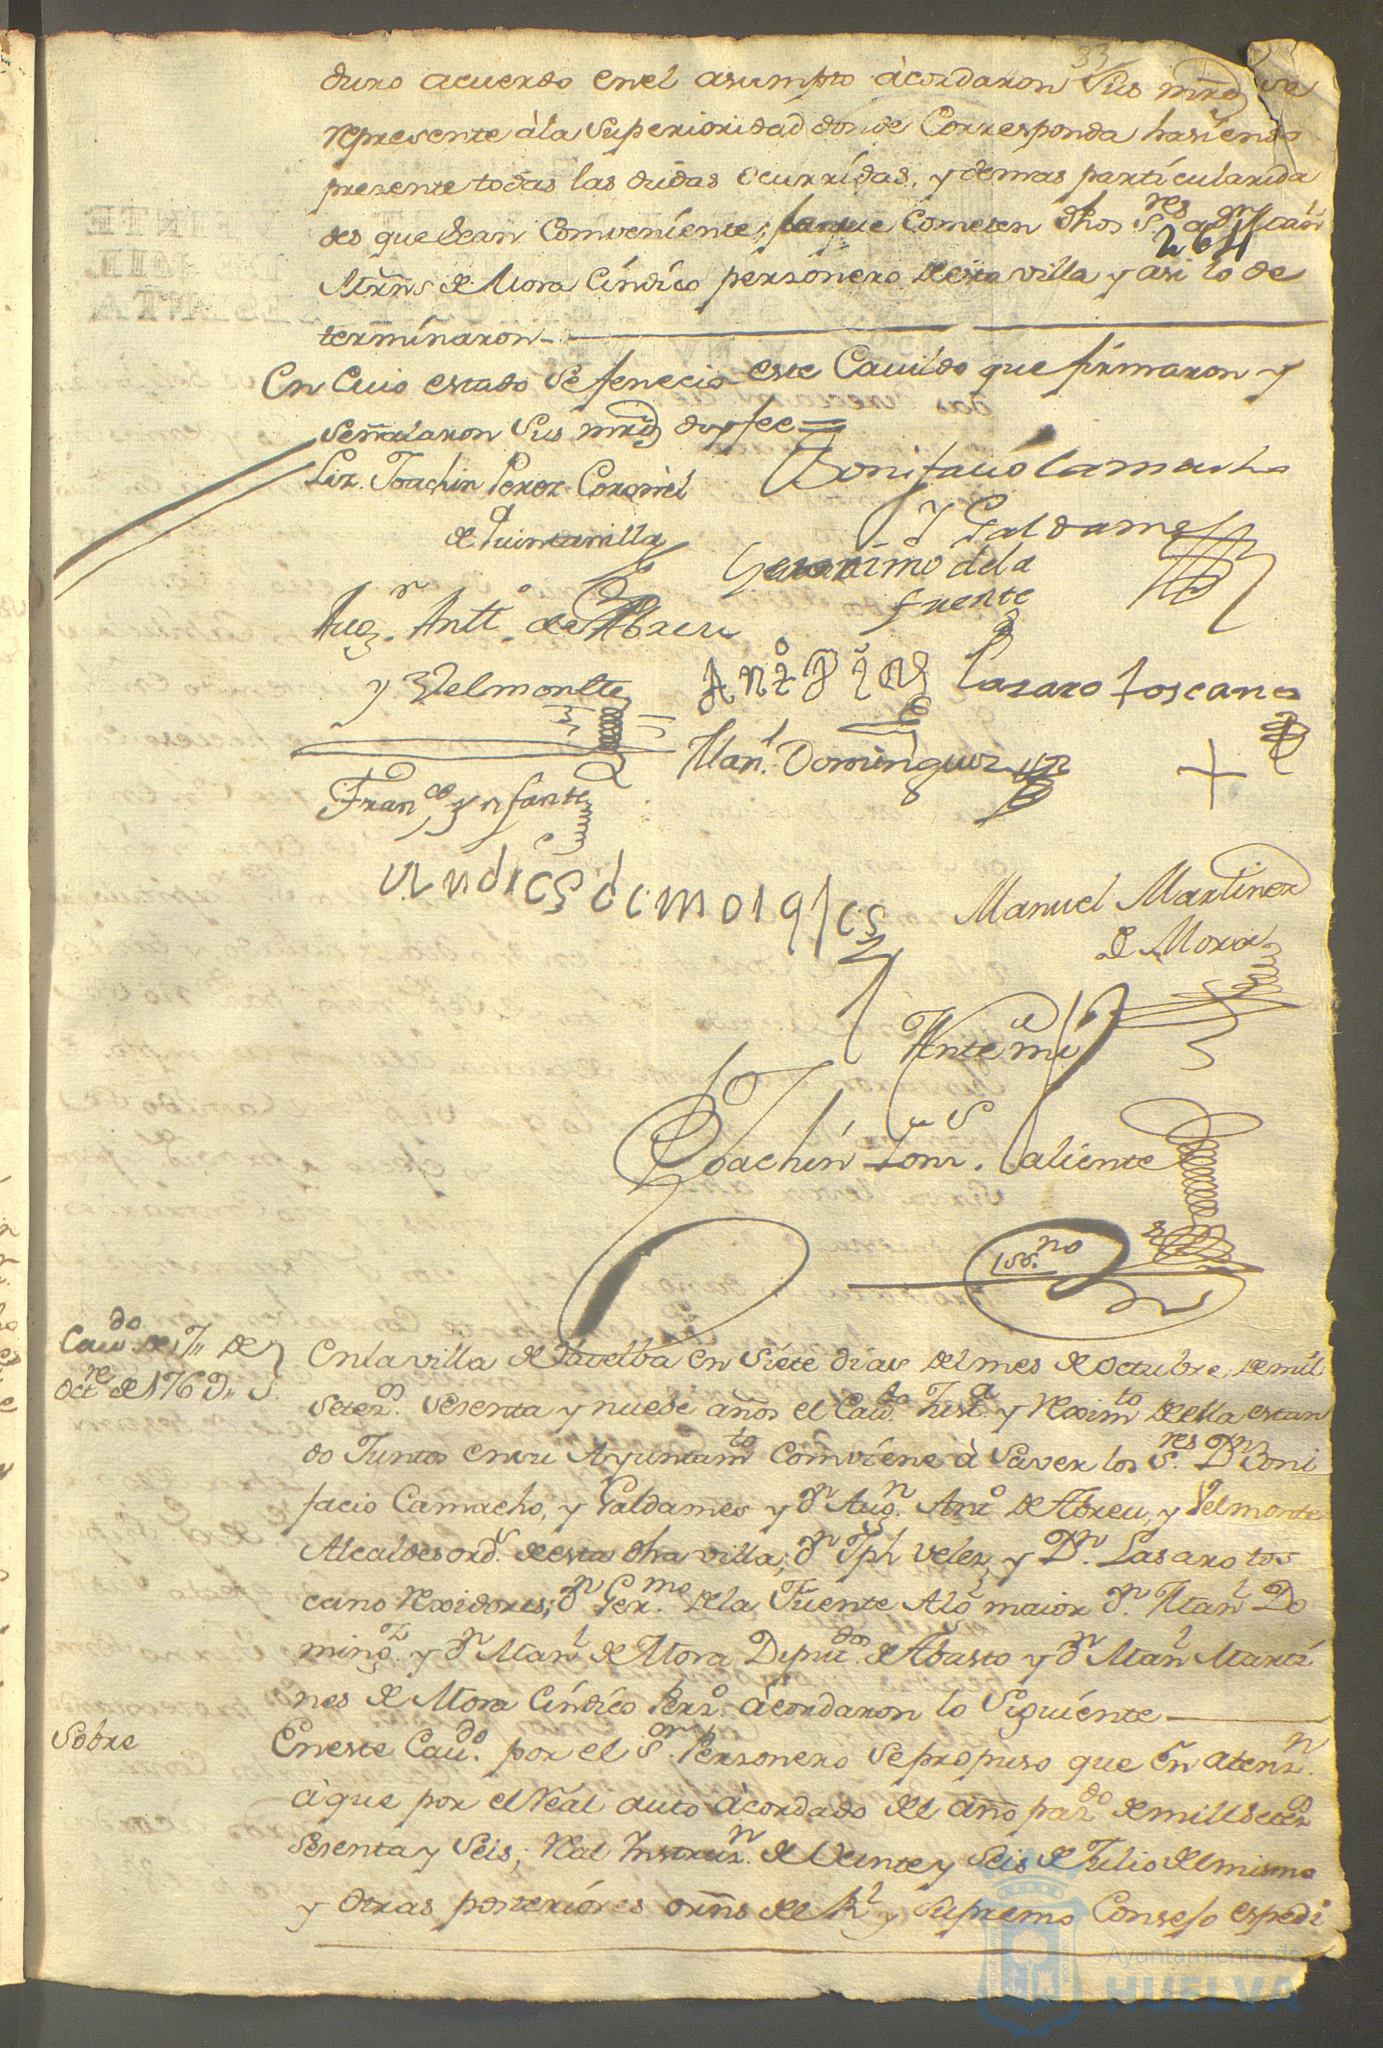 33
duro acuerdo enel asumpto àcordaron Sus mrds se
represente àla Superioridad donde Corresponda hasiendo
presente todas las dudas ocurridas, y demas particularida
des que sean Comveniente; loque Cometen dhos Sres a dn Man
264
Mrns de Mora Cindico personero desta villa y asi lo de
terminaron
En Cuio estado Se fenecio este Cavildo que firmaron y
Señalaron Sus mrds doy fee =
Liz. Joachin Perez Coronel
de Quintanilla
Bonifacio Camacho
y Galdames
Geronimo dela
frente
Augn. Antto. de Abreu
y Velmontte
Lazaro toscano
Manl. Dominguez
Franco Ynfante
Andres de morales
Manuel Martinez
de Mora
Ante mi
Joachin Valiente
Essno
Cavdo de 7 de
Octre de 1769 S.
Enla villa de Huelba en Siete dias del mes de Octubre de mil
Setezs. Sesenta y nuebe años el Cavdo Justa. y Reximto della estan
do Juntos ensu Ayuntamto Comviene à Saver los Sres. Dn Boni
facio Camacho, y Galdames y dn Augn. Anto de Abreu, y Velmonte
Alcaldes ords. de esta dha villa, dn Jph Velez, y Dn. Lasaro tos
cano Rexidores; dn Germo. dela Fuente Algl maior dn. Manl Do
mingz. y dn Manl de Mora Diputdos. de Abasto y dn Manl Marti
nes de Mora Cindico Perso. àcordaron lo Siguiente
Sobre
Eneste Cavdo. por el Sor. Personero Se propuso que en atenzn.
à que por el Real auto acordado del año pazdo de mill setezs
Sesenta y Seis; Real Instruzn. de Veinte y Seis de Julio del mismo
y otras posteriores orns del Rl y Supremo Consejo espedi
Ayuntamiento de
HUELVA